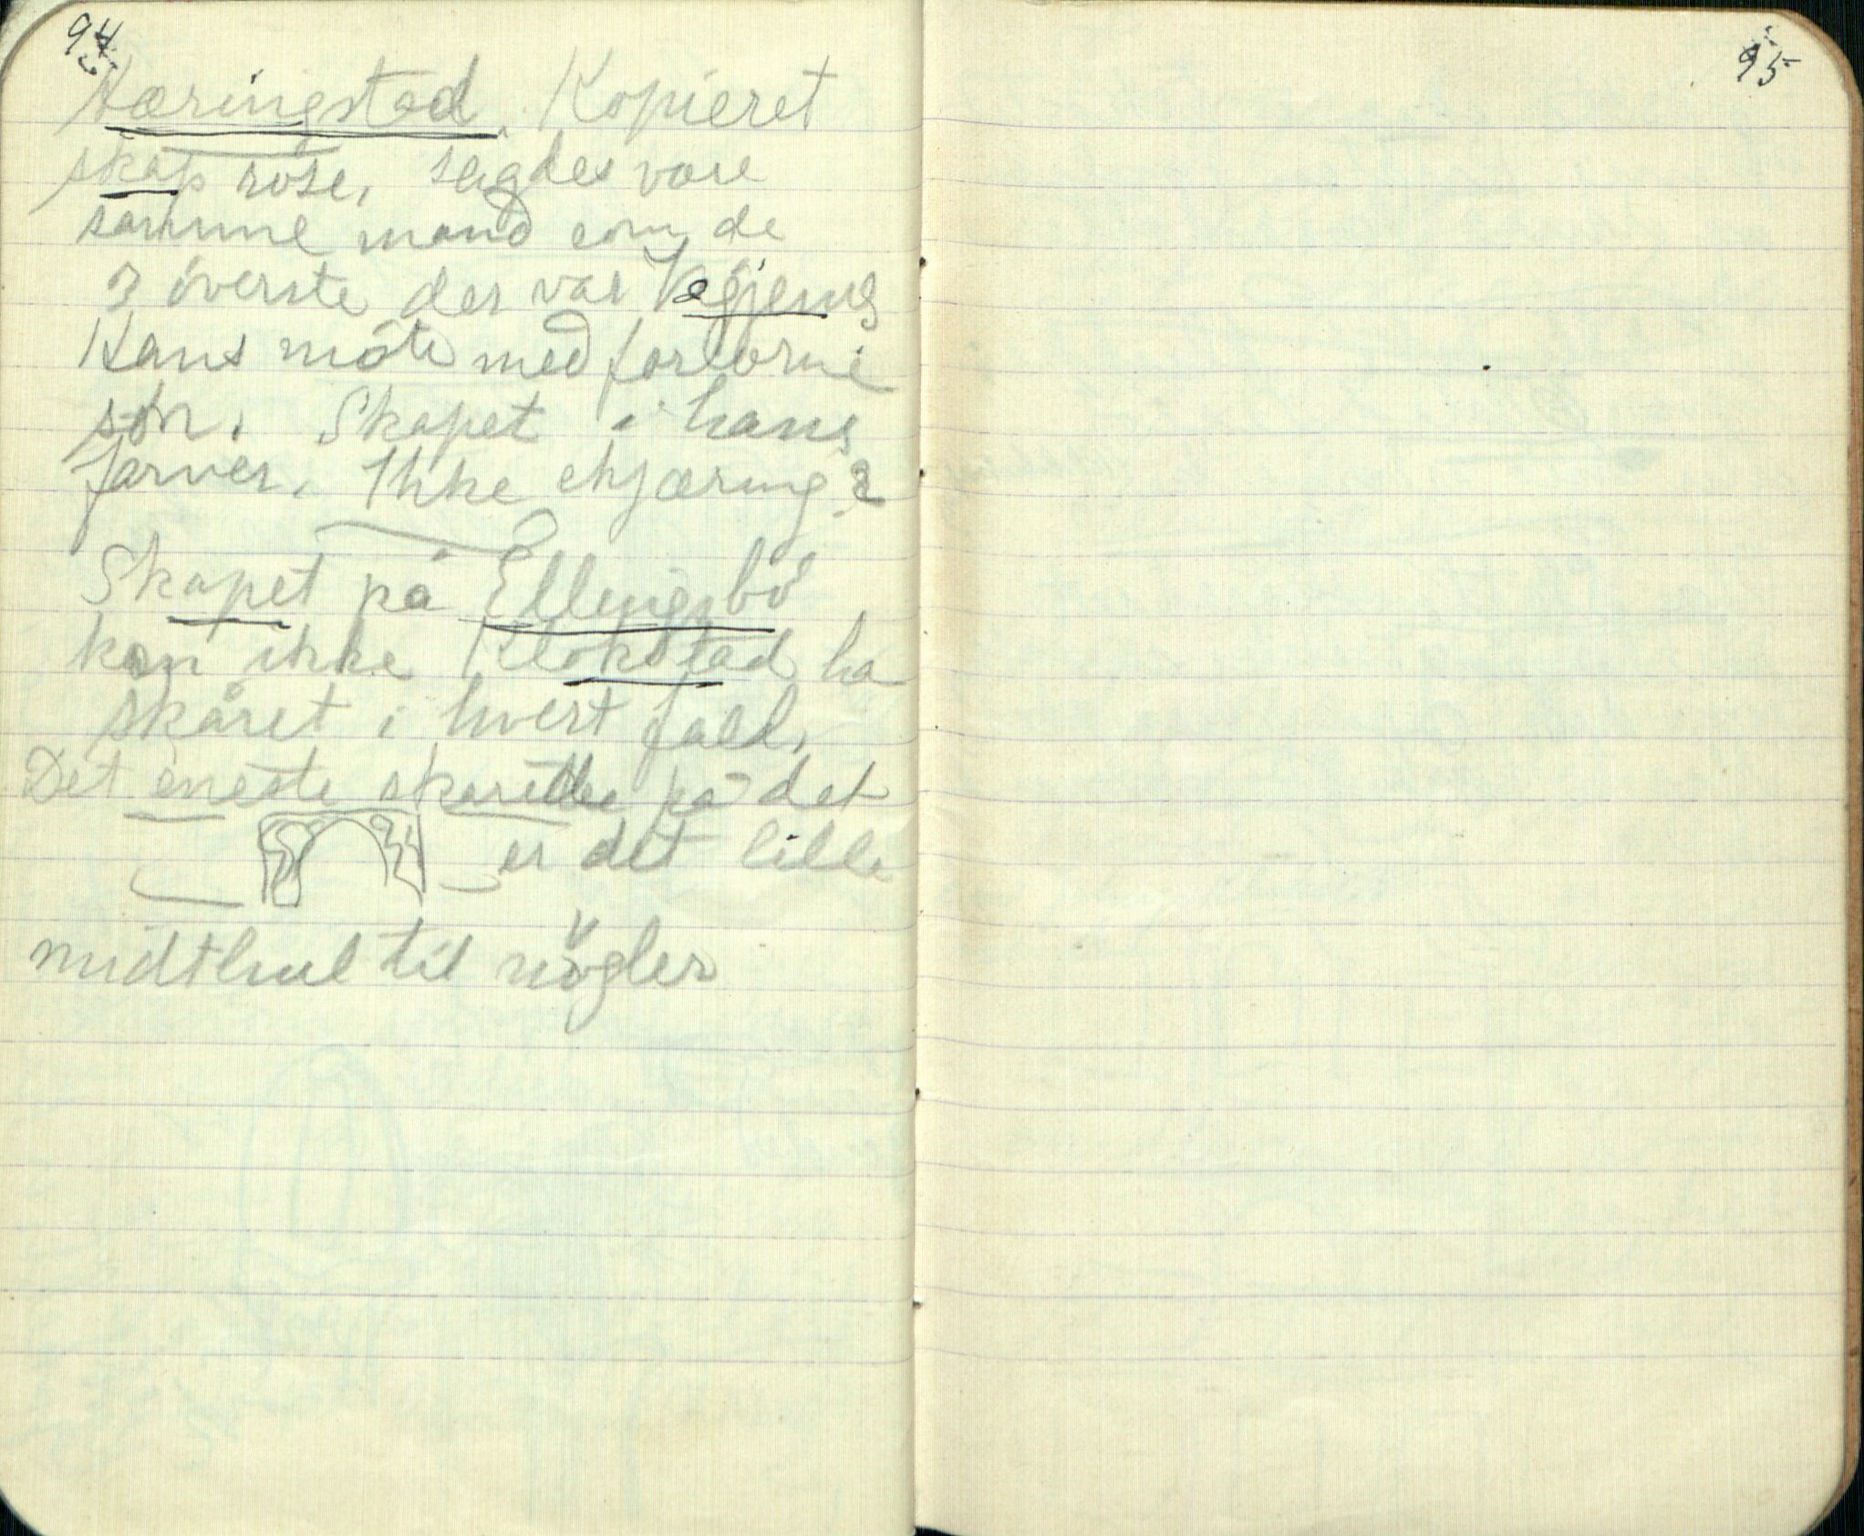 94
Hæringstad. Kopieret
skap rose, sagdes være
samme mand som de
3 øverste der var
Hans møte med forlorne
søn. Skapet i hans
farver. Ikke skjæring?
Skapet på Ellingsbö
kan ikke Klokstad ha
skåret i hvert fald.
Det eneste skåret på det
er det lille
midthul til nøgler
95